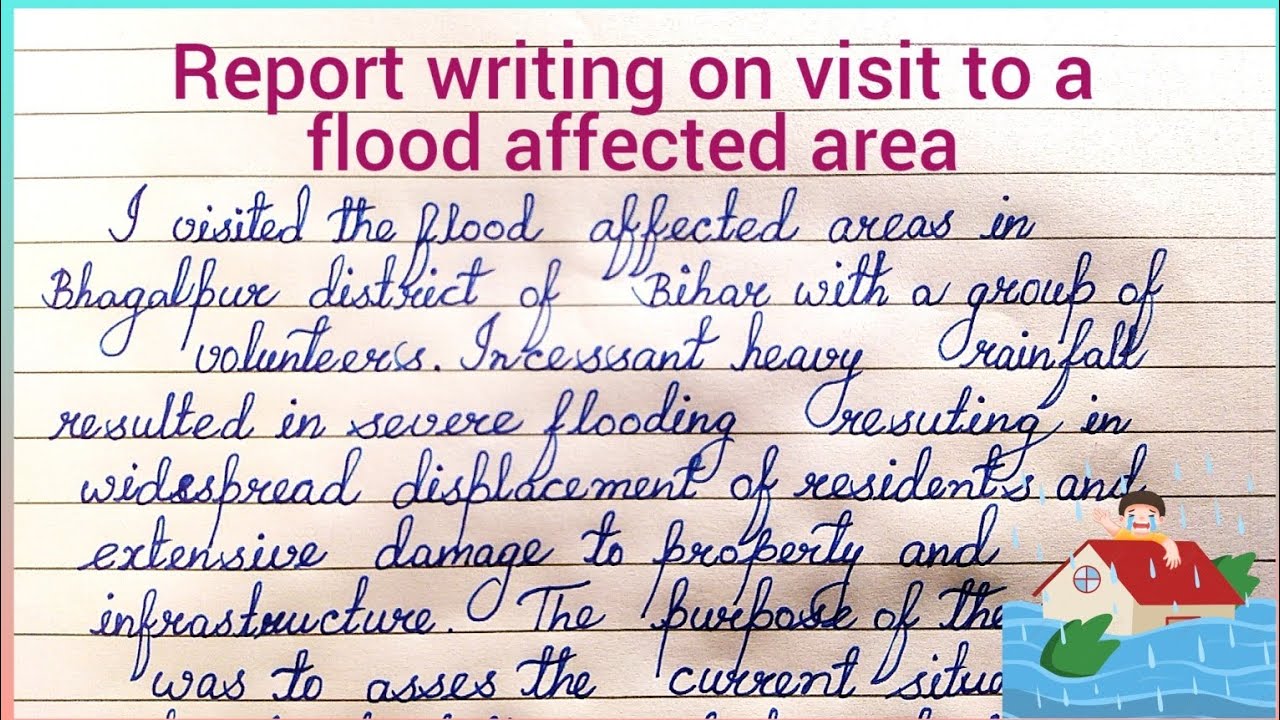 Report writing on visit to a
flood affected area
I visited the flood affected areas in
Bhagalpur district of Bihar with a group of
volunteers. Incessant heavy rainfall
resulted in severe flooding resuting in
widespread displacement of residents and
extensive damage to property and
infrastructure. The purpose of the
was to asses the current